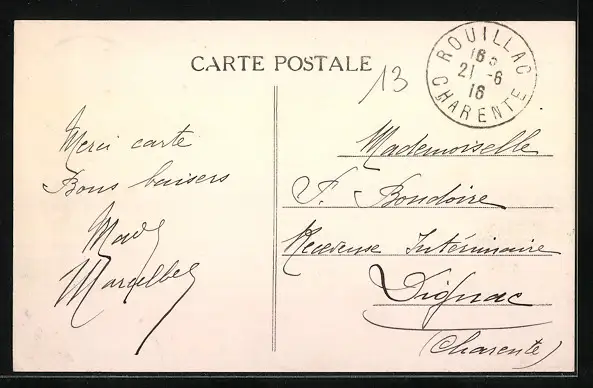 CARTE POSTALE
13
ROUILLAC
16
21-6
16
CHARENTE
Merci carte
Bons baisers
Mademoiselle
F. Bondoire
Receveuse Intérimaire
Dignac
(Charente)